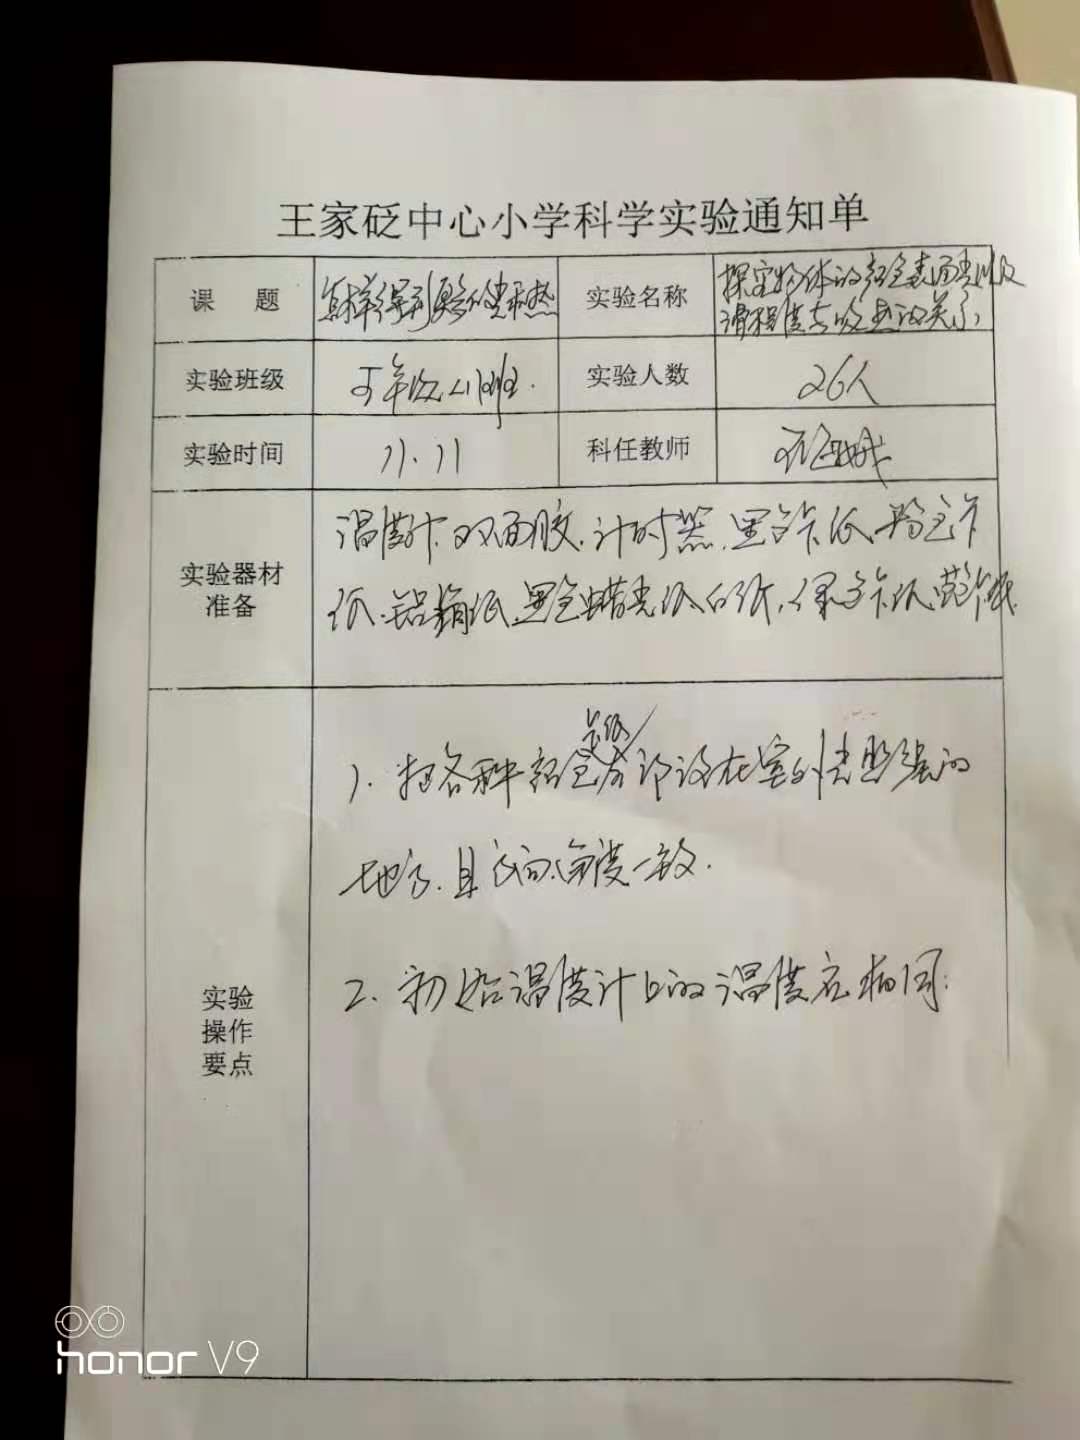 王家砭中心小学科学实验通知单
课 题 怎样得到更多的光和热 实验名称 探究物体的颜色表面光以及
滑程度与吸热的关系
实验班级 五年级(1)班. 实验人数 26人
实验时间 11.11 科任教师
温度计.双面胶.计时器.黑色卡纸.粉色卡
实验器材
准备
纸.铝箔纸.黑色蜡光纸.白纸.
卡纸
1.把各种颜色 都设在室外光照强的
地方.且方向.角度一致.
2.初始温度计上的温度应相同.
实验
操作
要点
honor V9